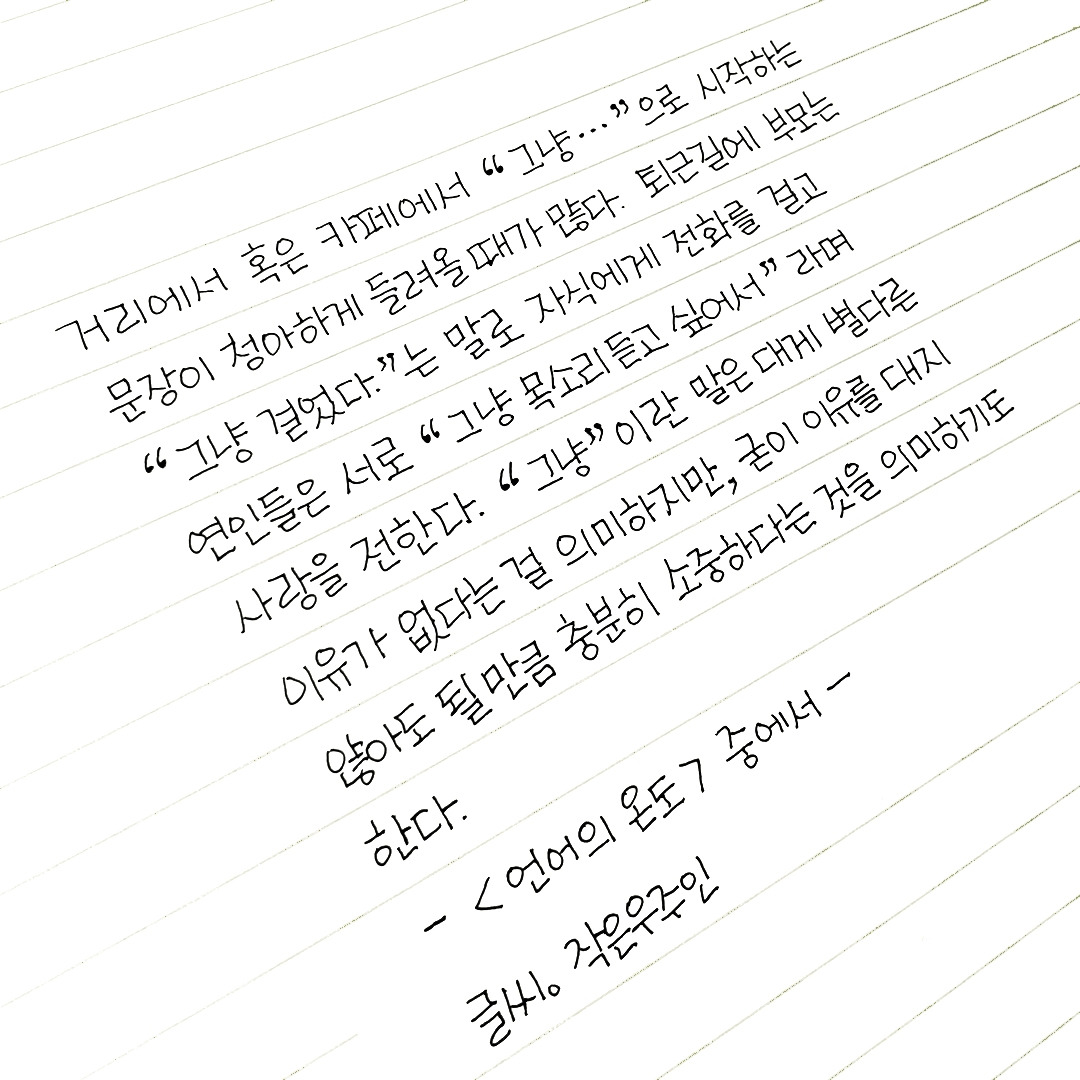 거리에서 혹은 카페에서 “그냥…”으로 시작하는
문장이 청아하게 들려올 때가 많다. 퇴근길에 부모는
“그냥 걸었다.”는 말로 자식에게 전화를 걸고
연인들은 서로 “그냥 목소리 듣고 싶어서”라며
사랑을 전한다. “그냥”이란 말은 대게 별다른
이유가 없다는 걸 의미하지만, 굳이 이유를 대지
않아도 될만큼 충분히 소중하다는 것을 의미하기도
한다.
- <언어의 온도> 중에서 -
글씨。작은우주인